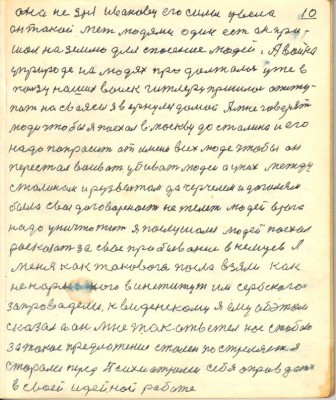 она не зря Иванову его силы ввела 10
он такой меж людями один есть он при-
шол на землю для спасение людей, А война
у природе на людях про должалась уже в
пользу наших войск гитлеру пришлось отсту-
пать на свояси я вернулся домой я мне говорят
люди чтобы я поехал в москву до сталина и его
надо попрасит от имени всех люде чтобы он
перестал воиват убиват люди а у них между
сталиным и рузвелтом да черчелем и деголлем
была своя договореность не жалет людей врага
надо уничтожит я послушался людей поехал
расказат за свое пробывание в немцев А
меня как такового посла взяли как
не нормалного в институт им сербского
запровадели, к введенскому я ему об этом
сказал а он мне так ответел нос чтобы
за такое предложение сталин пострелялся
старали перед психиатрией себя оправдать
в своей идейной работе